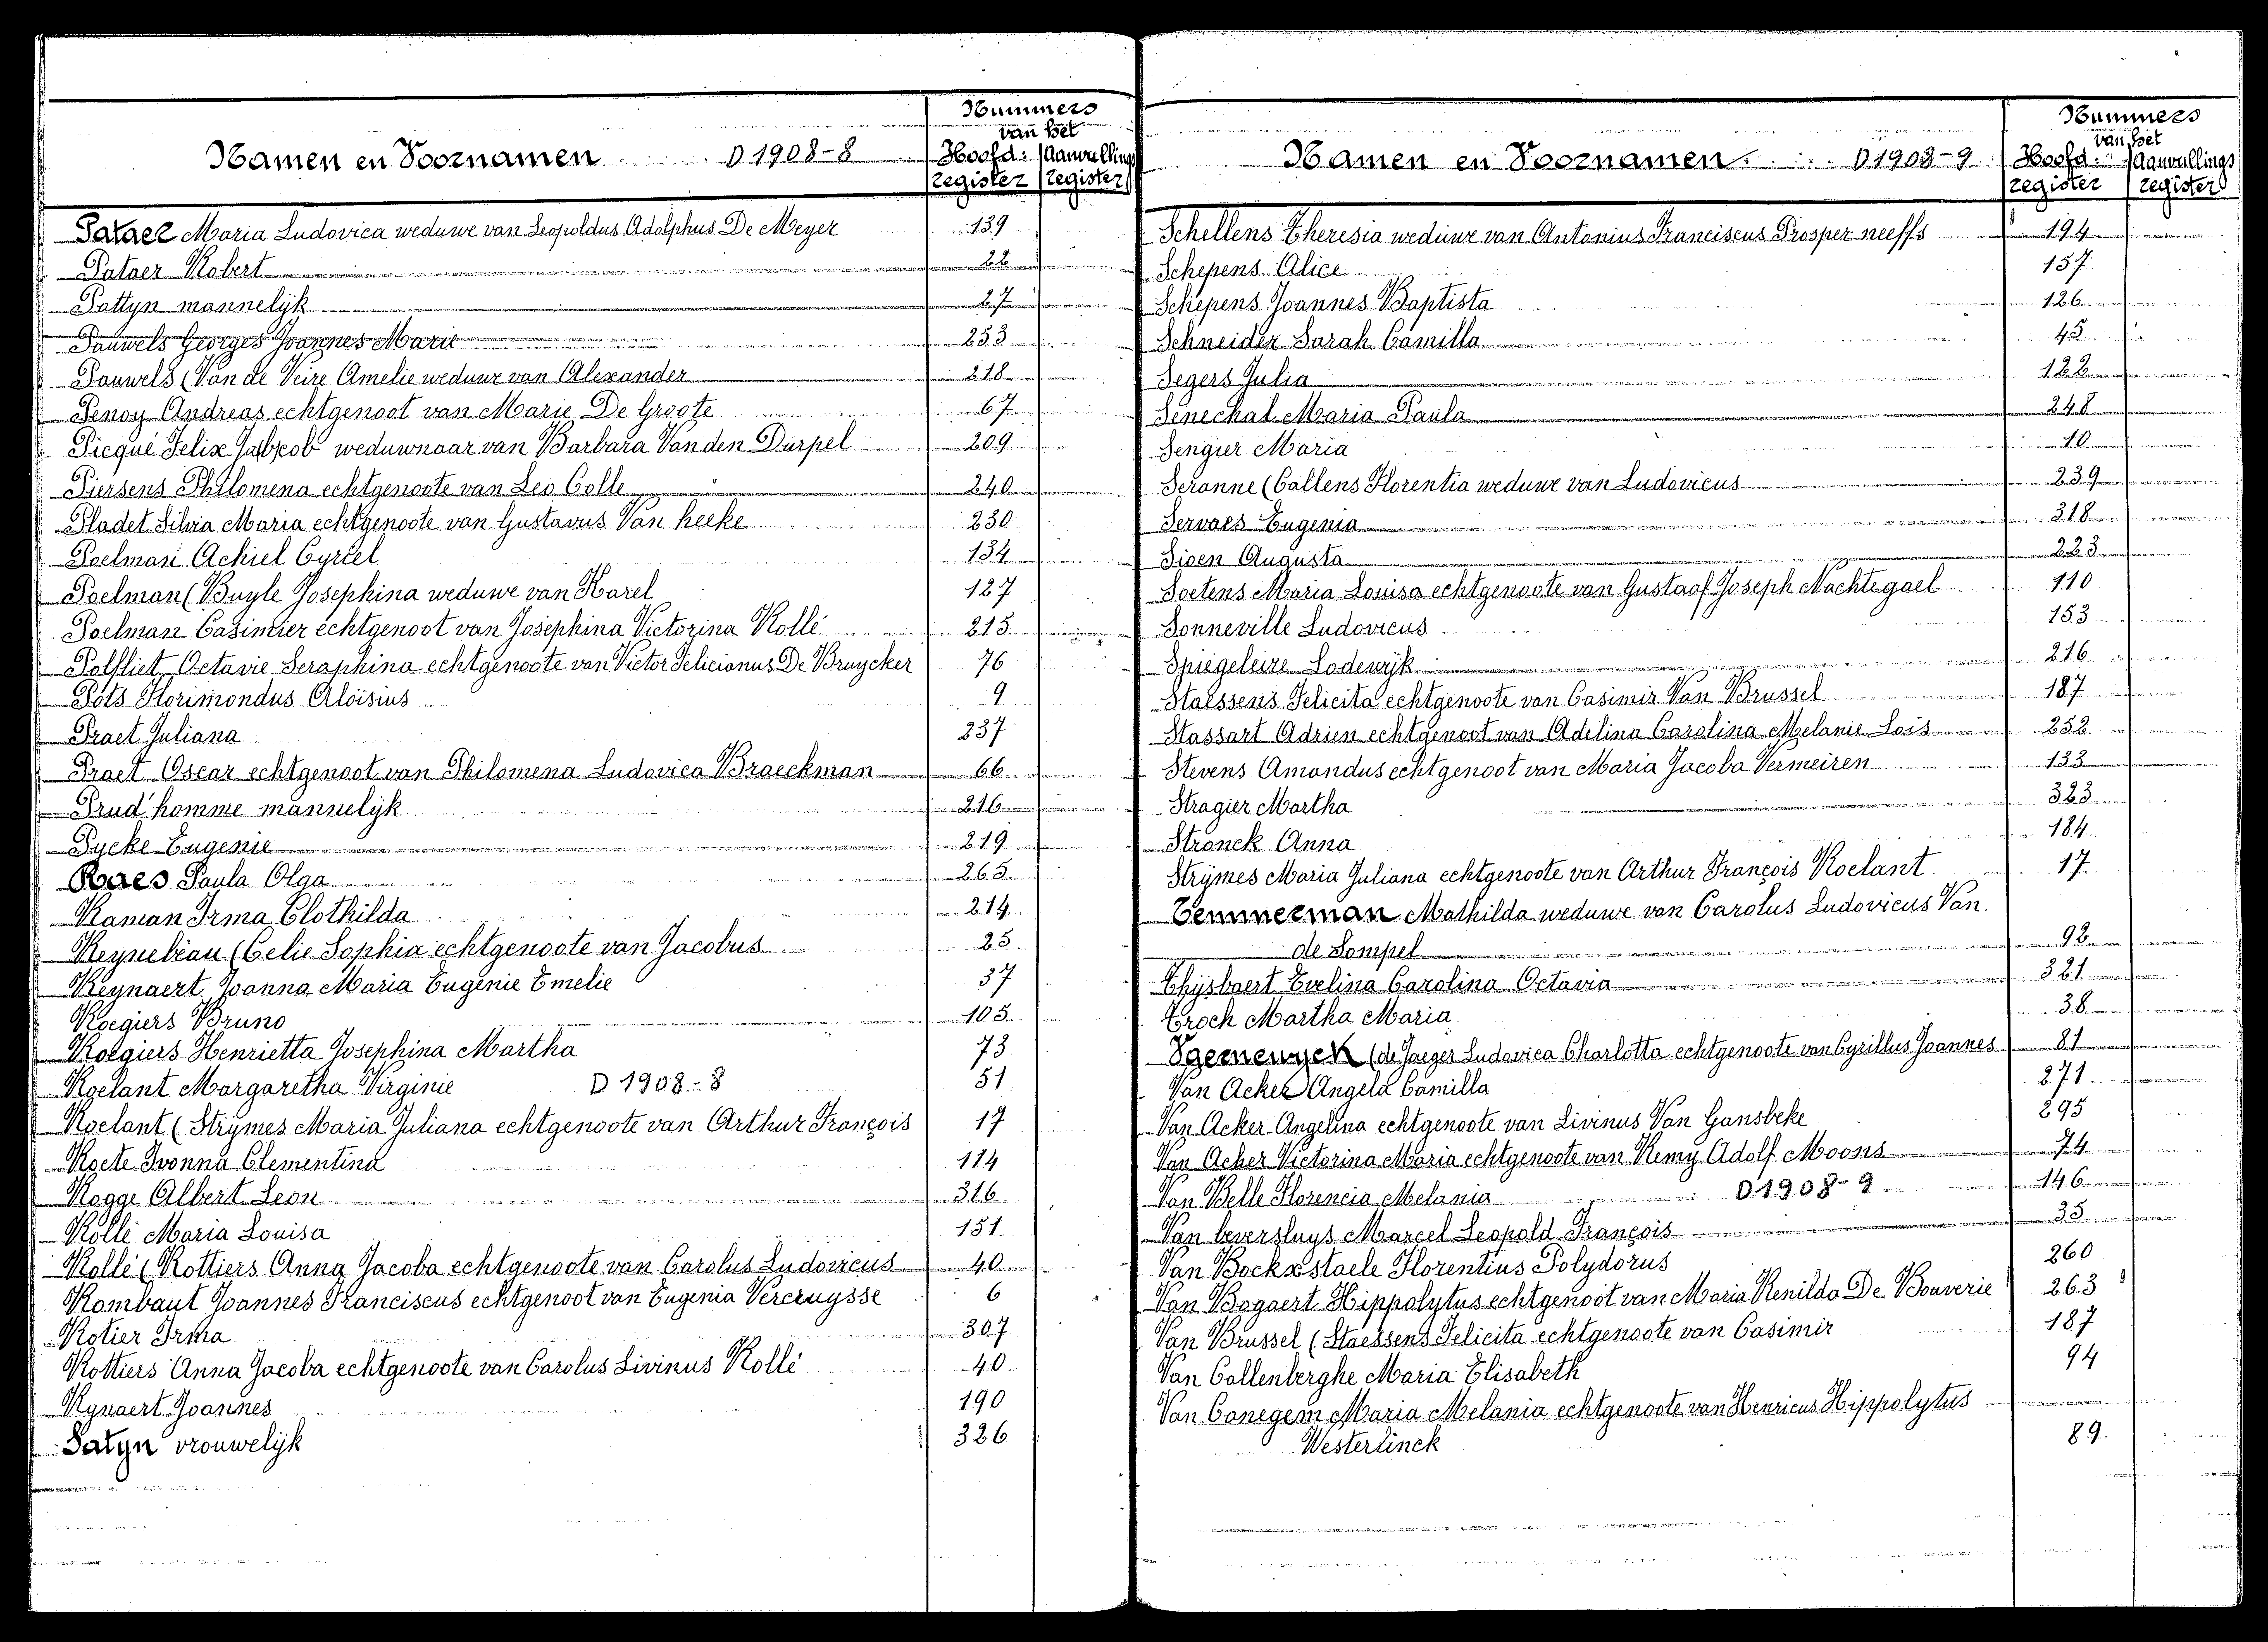 Namen en Voornamen D 1908-8
Nummers
van het
Hoofd: Aanvullings
register register
Pataer Maria Ludovica weduwe van Leopoldus Adolphus De Meyer 139
Pataer Robert 22
Pattyn mannelijk 27
Pauwels Georges Joannes Marie 253
Pauwels (Van de Veire Amelie weduwe van Alexander 218
Penoy Andreas echtgenoot van Marie De Groote 67
Picqué Felix weduwnaar van Barbara Van den Durpel 209
Piersens Philomena echtgenoote van Leo Colle 240
Pladet Silvia Maria echtgenoote van Gustavus Van hecke 230
Poelman Achiel Cyriel 134
Poelman (Buyle Josephina weduwe van Karel 127
Poelman Casimier echtgenoot van Josephina Victorina Rollé 215
Polfliet Octavie Seraphina echtgenoote van Victor Felicianus De Bruycker 76
Pots Florimondus Aloïsius 9
Praet Juliana 237
Praet Oscar echtgenoot van Philomena Ludovica Braeckman 66
Prud'homme mannelijk 216
Pycke Eugenie 219
Raes Paula Olga 265
Raman Irma Clothilda 214
Reynebeau (Celie Sophia echtgenoote van Jacobus 25
Reynaert Joanna Maria Eugenie Emelie 37
Roegiers Bruno 105
Roegiers Henrietta Josephina Martha 73
Roelant Margaretha Virginie D 1908-8 51
Roelant (Strymes Maria Juliana echtgenoote van Arthur François 17
Roete Ivonna Clementina 114
Rogge Albert Leon 316
Rollé Maria Louisa 151
Rollé (Rottiers Anna Jacoba echtgenoote van Carolus Ludovicus 40
Rombaut Joannes Franciscus echtgenoot van Eugenia Vercruysse 6
Rotier Irma 307
Rottiers Anna Jacoba echtgenoote van Carolus Livinus Rollé 40
Rynaert Joannes 190
Satyn vrouwelijk 326
Namen en Voornamen D 1908-9
Nummers
van het
Hoofd: Aanvullings
register register
Schellens Theresia weduwe van Antonius Franciscus Prosper neeffs 194
Schepens Alice 157
Schepens Joannes Baptista 126
Schneider Sarah Camilla 45
Segers Julia 122
Senechal Maria Paula 248
Sengier Maria 10
Seranne (Callens Florentia weduwe van Ludovicus 239
Servaes Eugenia 318
Sioen Augusta 223
Soetens Maria Louisa echtgenoote van Gustaaf Joseph Nachtegael 110
Sonneville Ludovicus 153
Spiegeleire Lodewijk 216
Staessens Felicita echtgenoote van Casimir Van Brussel 187
Stassart Adrien echtgenoot van Adelina Carolina Melanie Lois 252
Stevens Amandus echtgenoot van Maria Jacoba Vermeiren 133
Stragier Martha 323
Stronck Anna 184
Strymes Maria Juliana echtgenoote van Arthur François Roelant 17
Temmerman Mathilda weduwe van Carolus Ludovicus Van
de Sompel 92
Thijsbaert Evelina Carolina Octavia 321
Troch Martha Maria 38
Ugemenyck (de Jaeger Ludovica Charlotta echtgenoote van Cyrillus Joannes 81
Van Acker Angela Camilla 271
Van Acker Angelina echtgenoote van Livinus Van Gansbeke 295
Van Acker Victorina Maria echtgenoote van Remy Adolf Moons 74
Van Belle Florencia Melania D 1908-9 146
Van beversluys Marcel Leopold François 35
Van Bockxstaele Florentius Polydorus 260
Van Bogaert Hippolytus echtgenoot van Maria Renilda De Bouverie 263
Van Brussel (Staessens Felicita echtgenoote van Casimir 187
Van Callenberghe Maria Elisabeth 94
Van Canegem Maria Melania echtgenoote van Henricus Hippolytus
Westerlinck 89